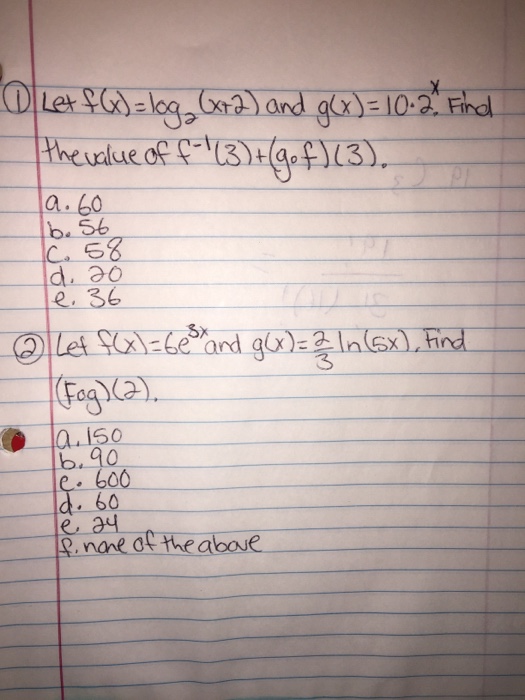 ① Let f(x)=log₂(x+2) and g(x)=10·2ˣ. Find
the value of f⁻¹(3)+(g∘f)(3).
a. 60
b. 56
c. 58
d. 20
e. 36
② Let f(x)=6e³ˣ and g(x)=2/3 ln(5x), Find
(Fog)(2).
a. 150
b. 90
c. 600
d. 60
e. 24
f. none of the above